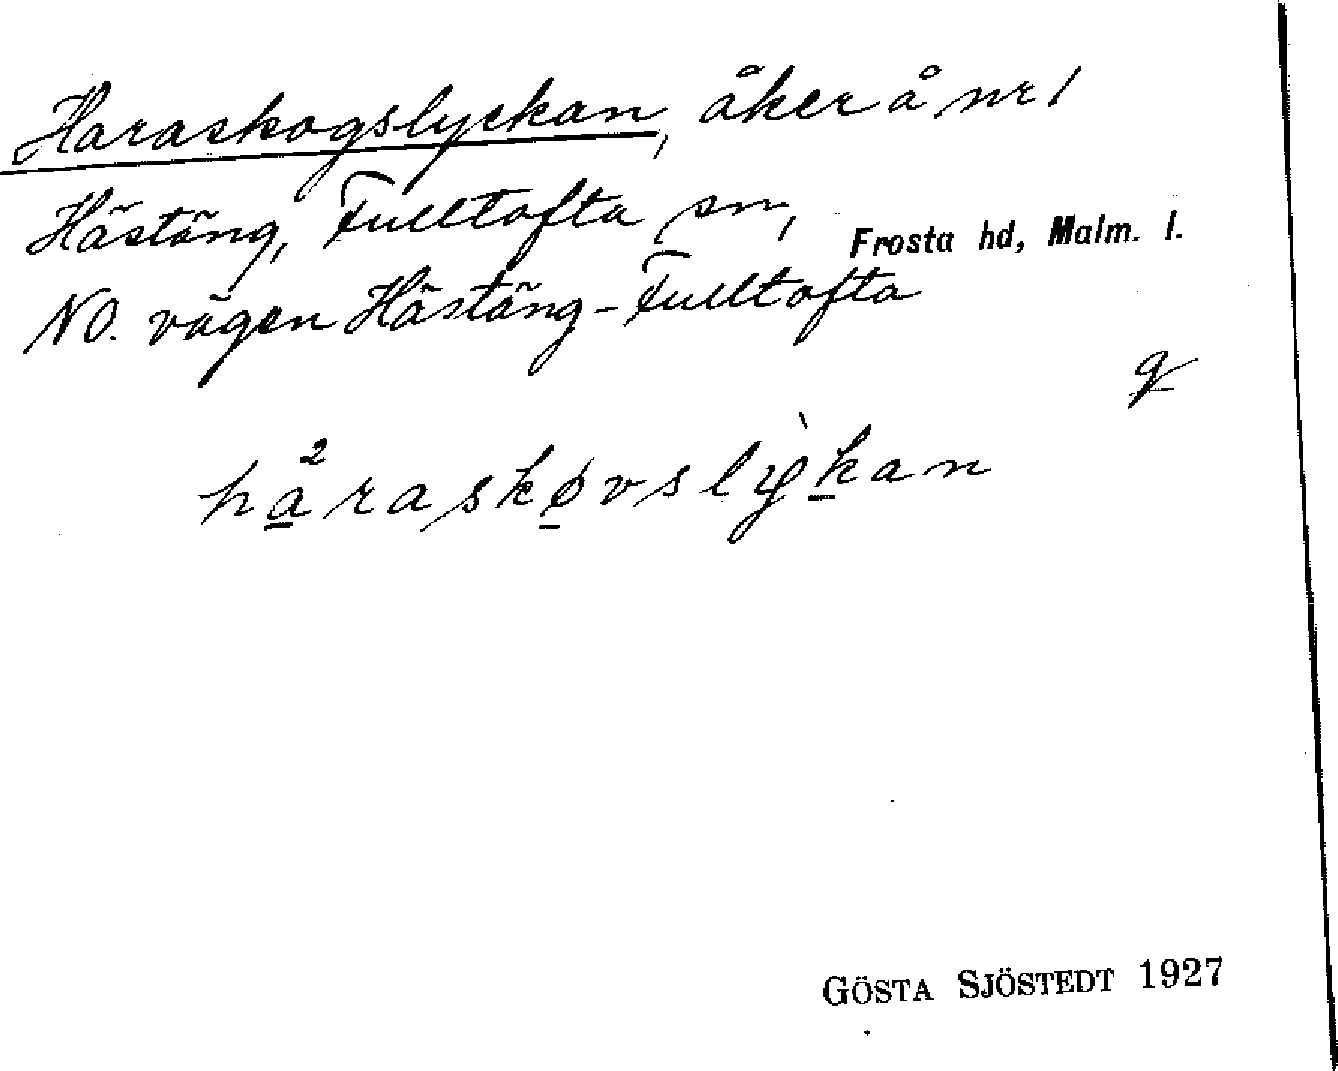 Haraskogslyckan, åker å nr 1
Hästäng, Fulltofta sn, Frosta hd, Malm. l.
NO. vägen Hästäng-Fulltofta
q
hа̲²raskø̲vslỳk̲an
GÖSTA SJÖSTEDT 1927